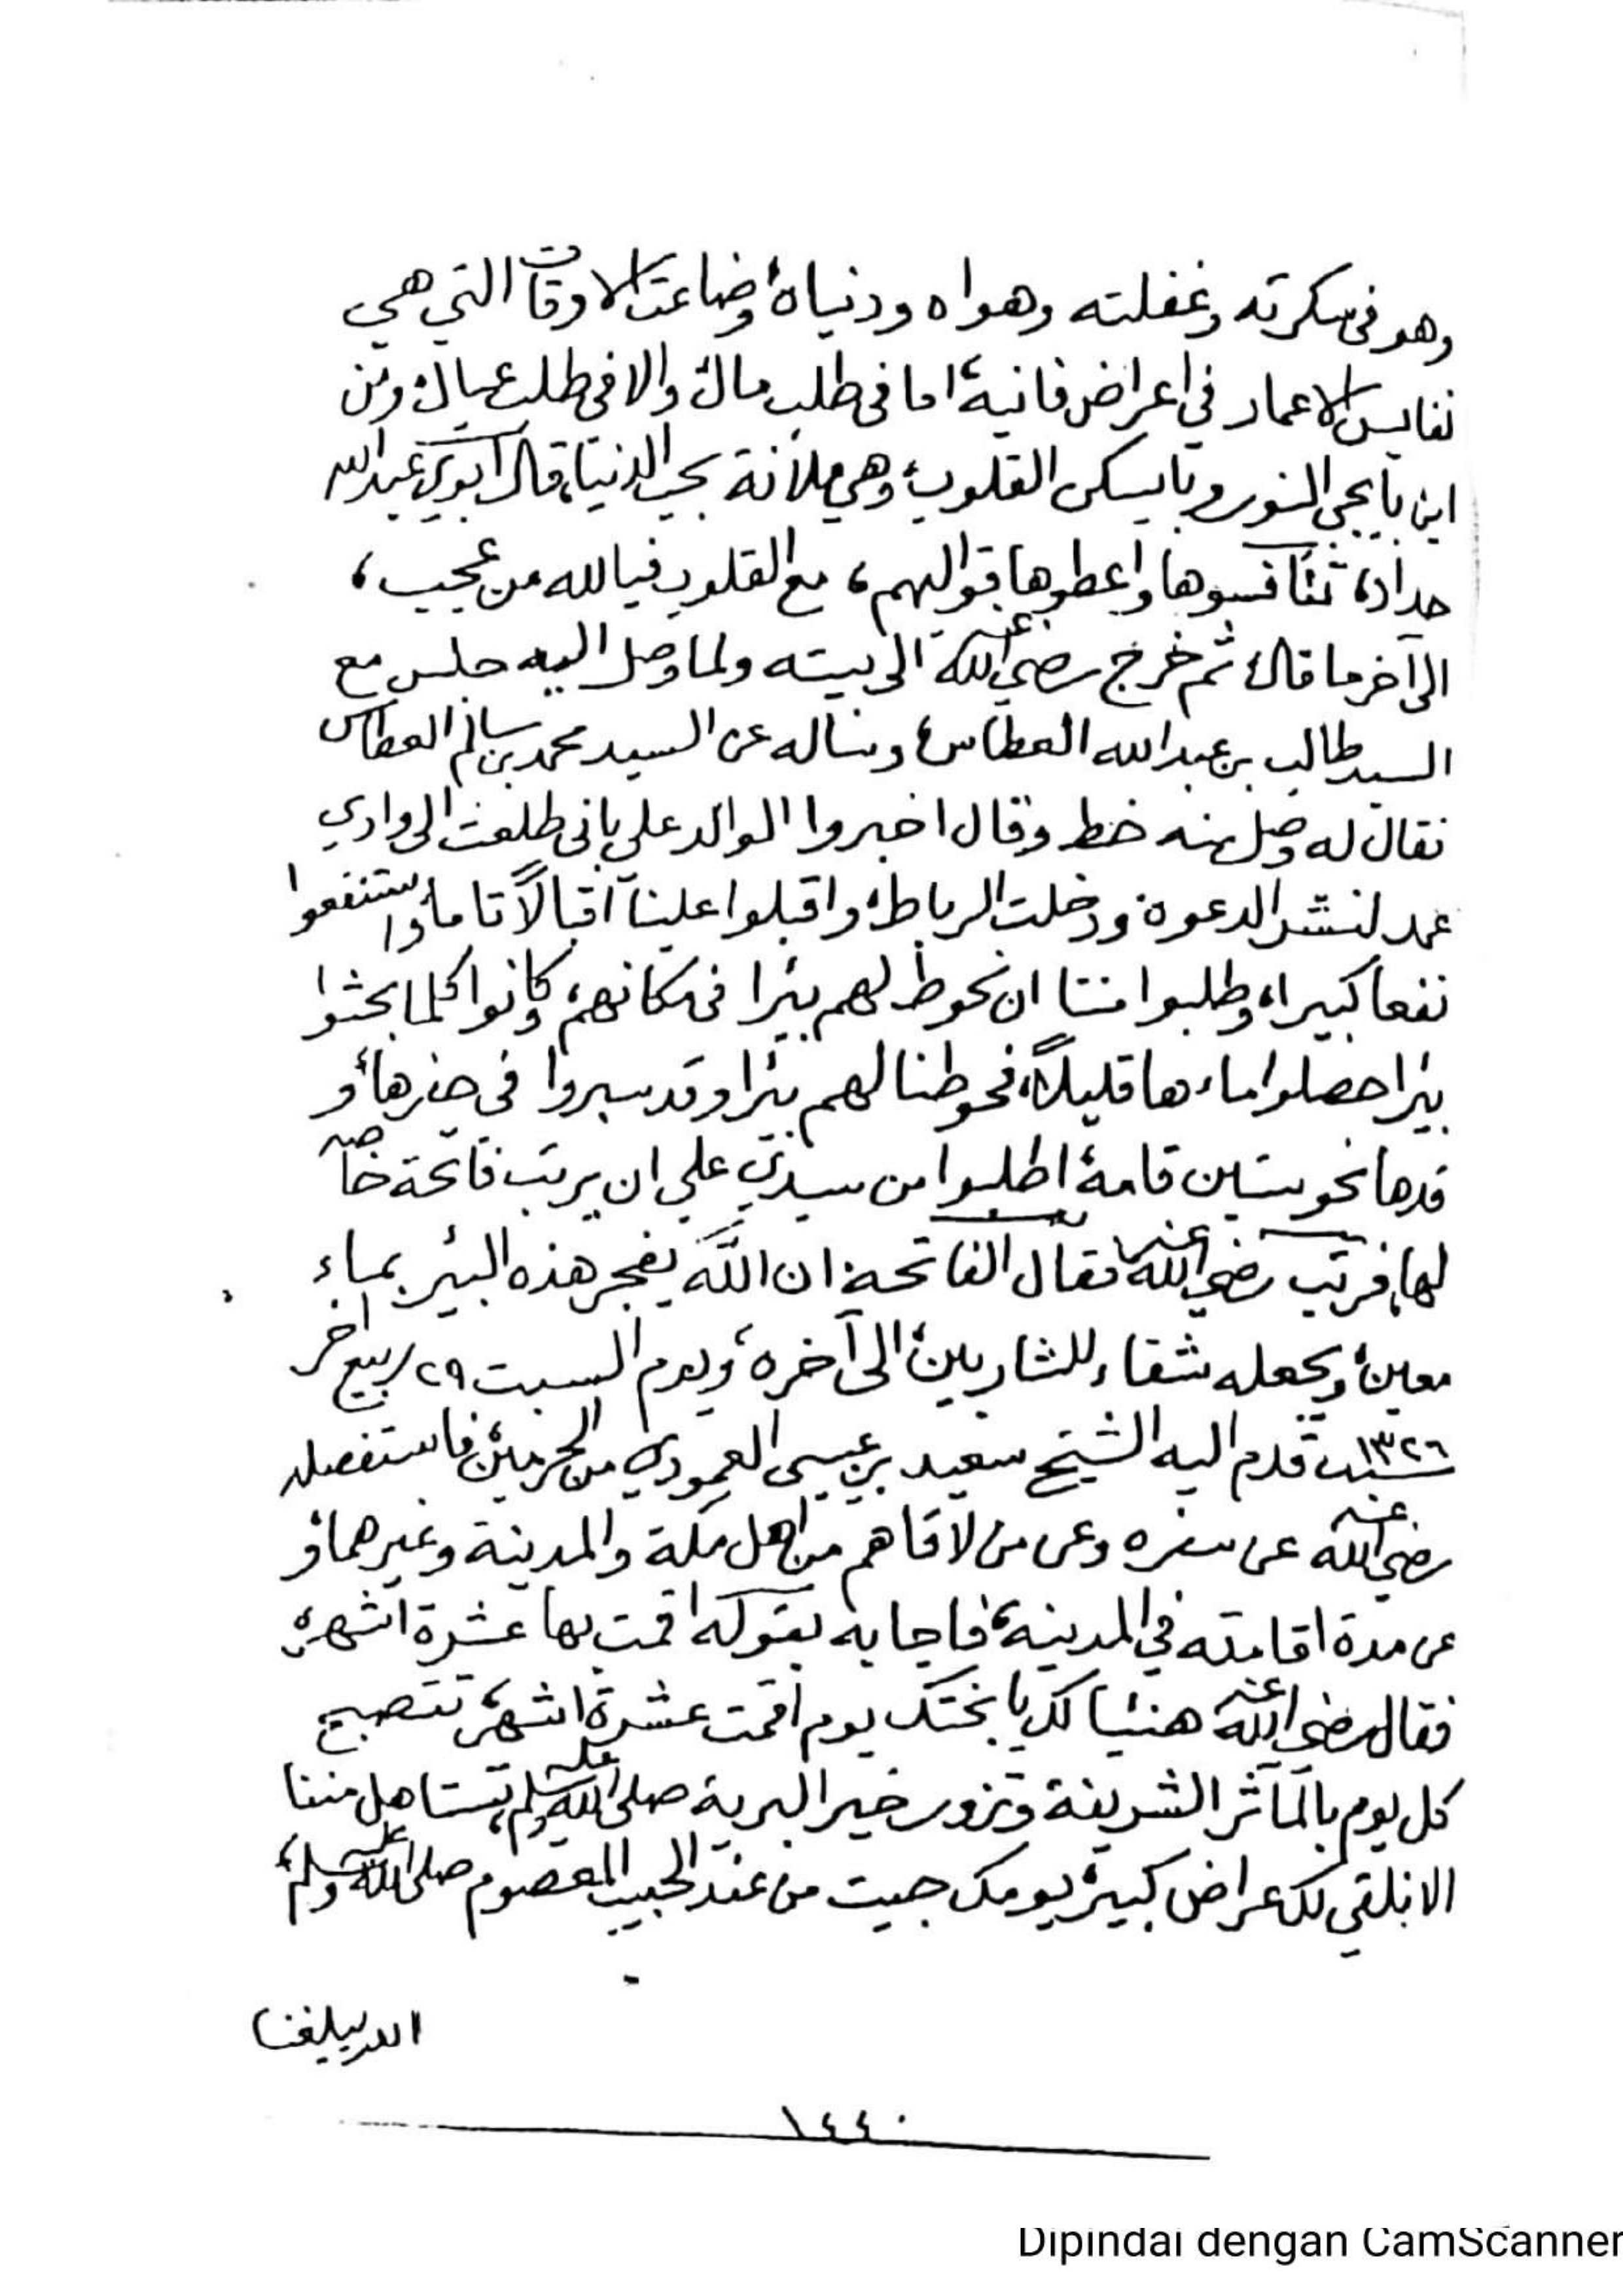 وهو في سكرته وغفلته وهواه ودنياه، وضاعت الاوقات التي هي
نفايس الاعمار في اعراض فانية، اما في طلب مال، والا في طلب عيال، ومن
اين بايجي النور وبايسكن القلوب، وهي ملانة بحب الدنيا، قال ابوي عبدالله
حداد، تنافسوها واعطوها قوالبهم، مع القلوب فيا لله من عجب،
الى آخر ما قال، ثم خرج رضي الله عنه الى بيته ولما وصل اليه جلس مع
السيد طالب بن عبدالله العطاس، وساله عن السيد محمد بن سالم العطاس
فقال له وصل منه خط وقال اخبروا الوالد علي باني طلعت الى وادي
عمد لنشر الدعوة، ودخلت الرباط، واقبلوا علينا اقبالاً تاما، واستنفعوا
نفعا كبيرا، وطلبوا منا ان نحوط لهم بئرا في مكانهم، وكانوا كلما بحثوا
بئرا حصلوا ماءها قليلاً، فحوطنا لهم بئرا وقد سبروا في حفرها، و
قدها نحو ستين قامة، اطلبوا من سيدي علي ان يرتب فاتحة خاصه
لها، فرتب رضي الله عنه فقال الفاتحة، ان الله يفجر هذه البئر بماء
معين، ويجعله شفاء للشاربين، الى آخره، ويوم السبت ٢٩ ربيع اخر
سنة ١٣٢٦ قدم اليه الشيخ سعيد بن عيسى العمودي من الحرمين، فاستفصله
رضي الله عنه عن سفره وعن من لاقاهم من اهل مكة والمدينة وغيرهما، و
عن مدة اقامته في المدينة، فاجابه بقوله اقمت بها عشرة اشهر،
فقال رضي الله عنه هنئيا لك يا بختك يوم اقمت عشرة اشهر، تتصبح
كل يوم بالمآثر الشريفة وتزور خير البرية صلى الله عليه وسلم، تستاهل مننا
الا نلتقي لك عراض كبير، يومك جيت من عند الحبيب المعصوم صلى الله عليه وسلم،
الله يبلغنا
١٤٤٠
Dipindai dengan CamScanner